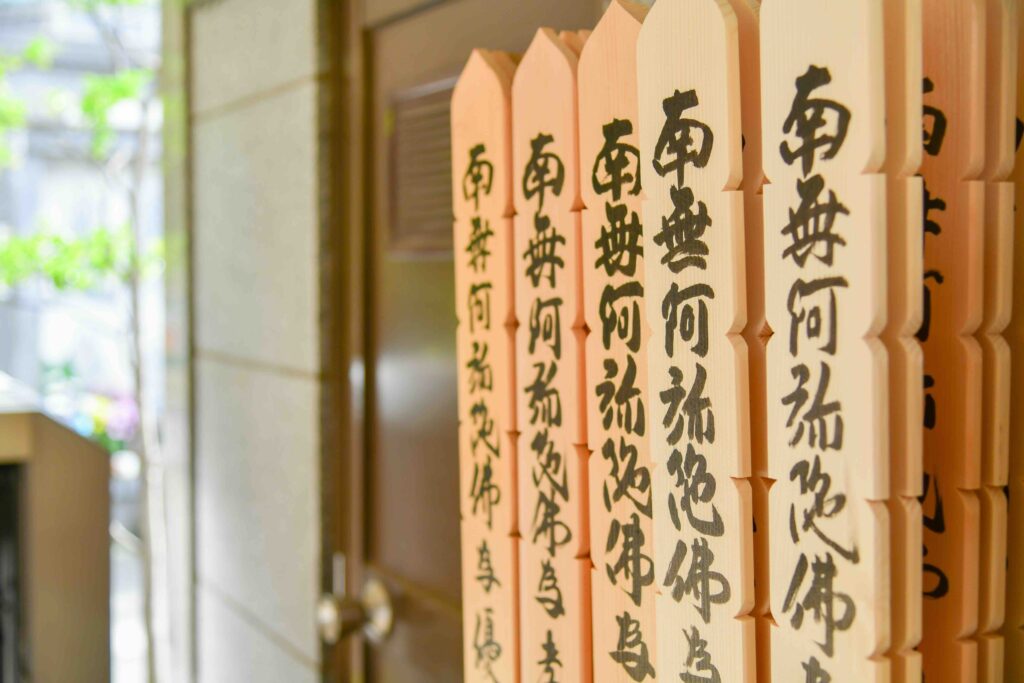 南無阿弥陀佛為
南無阿弥陀佛為
南無阿弥陀佛為
南無阿弥陀佛為孝
南無阿弥陀佛為